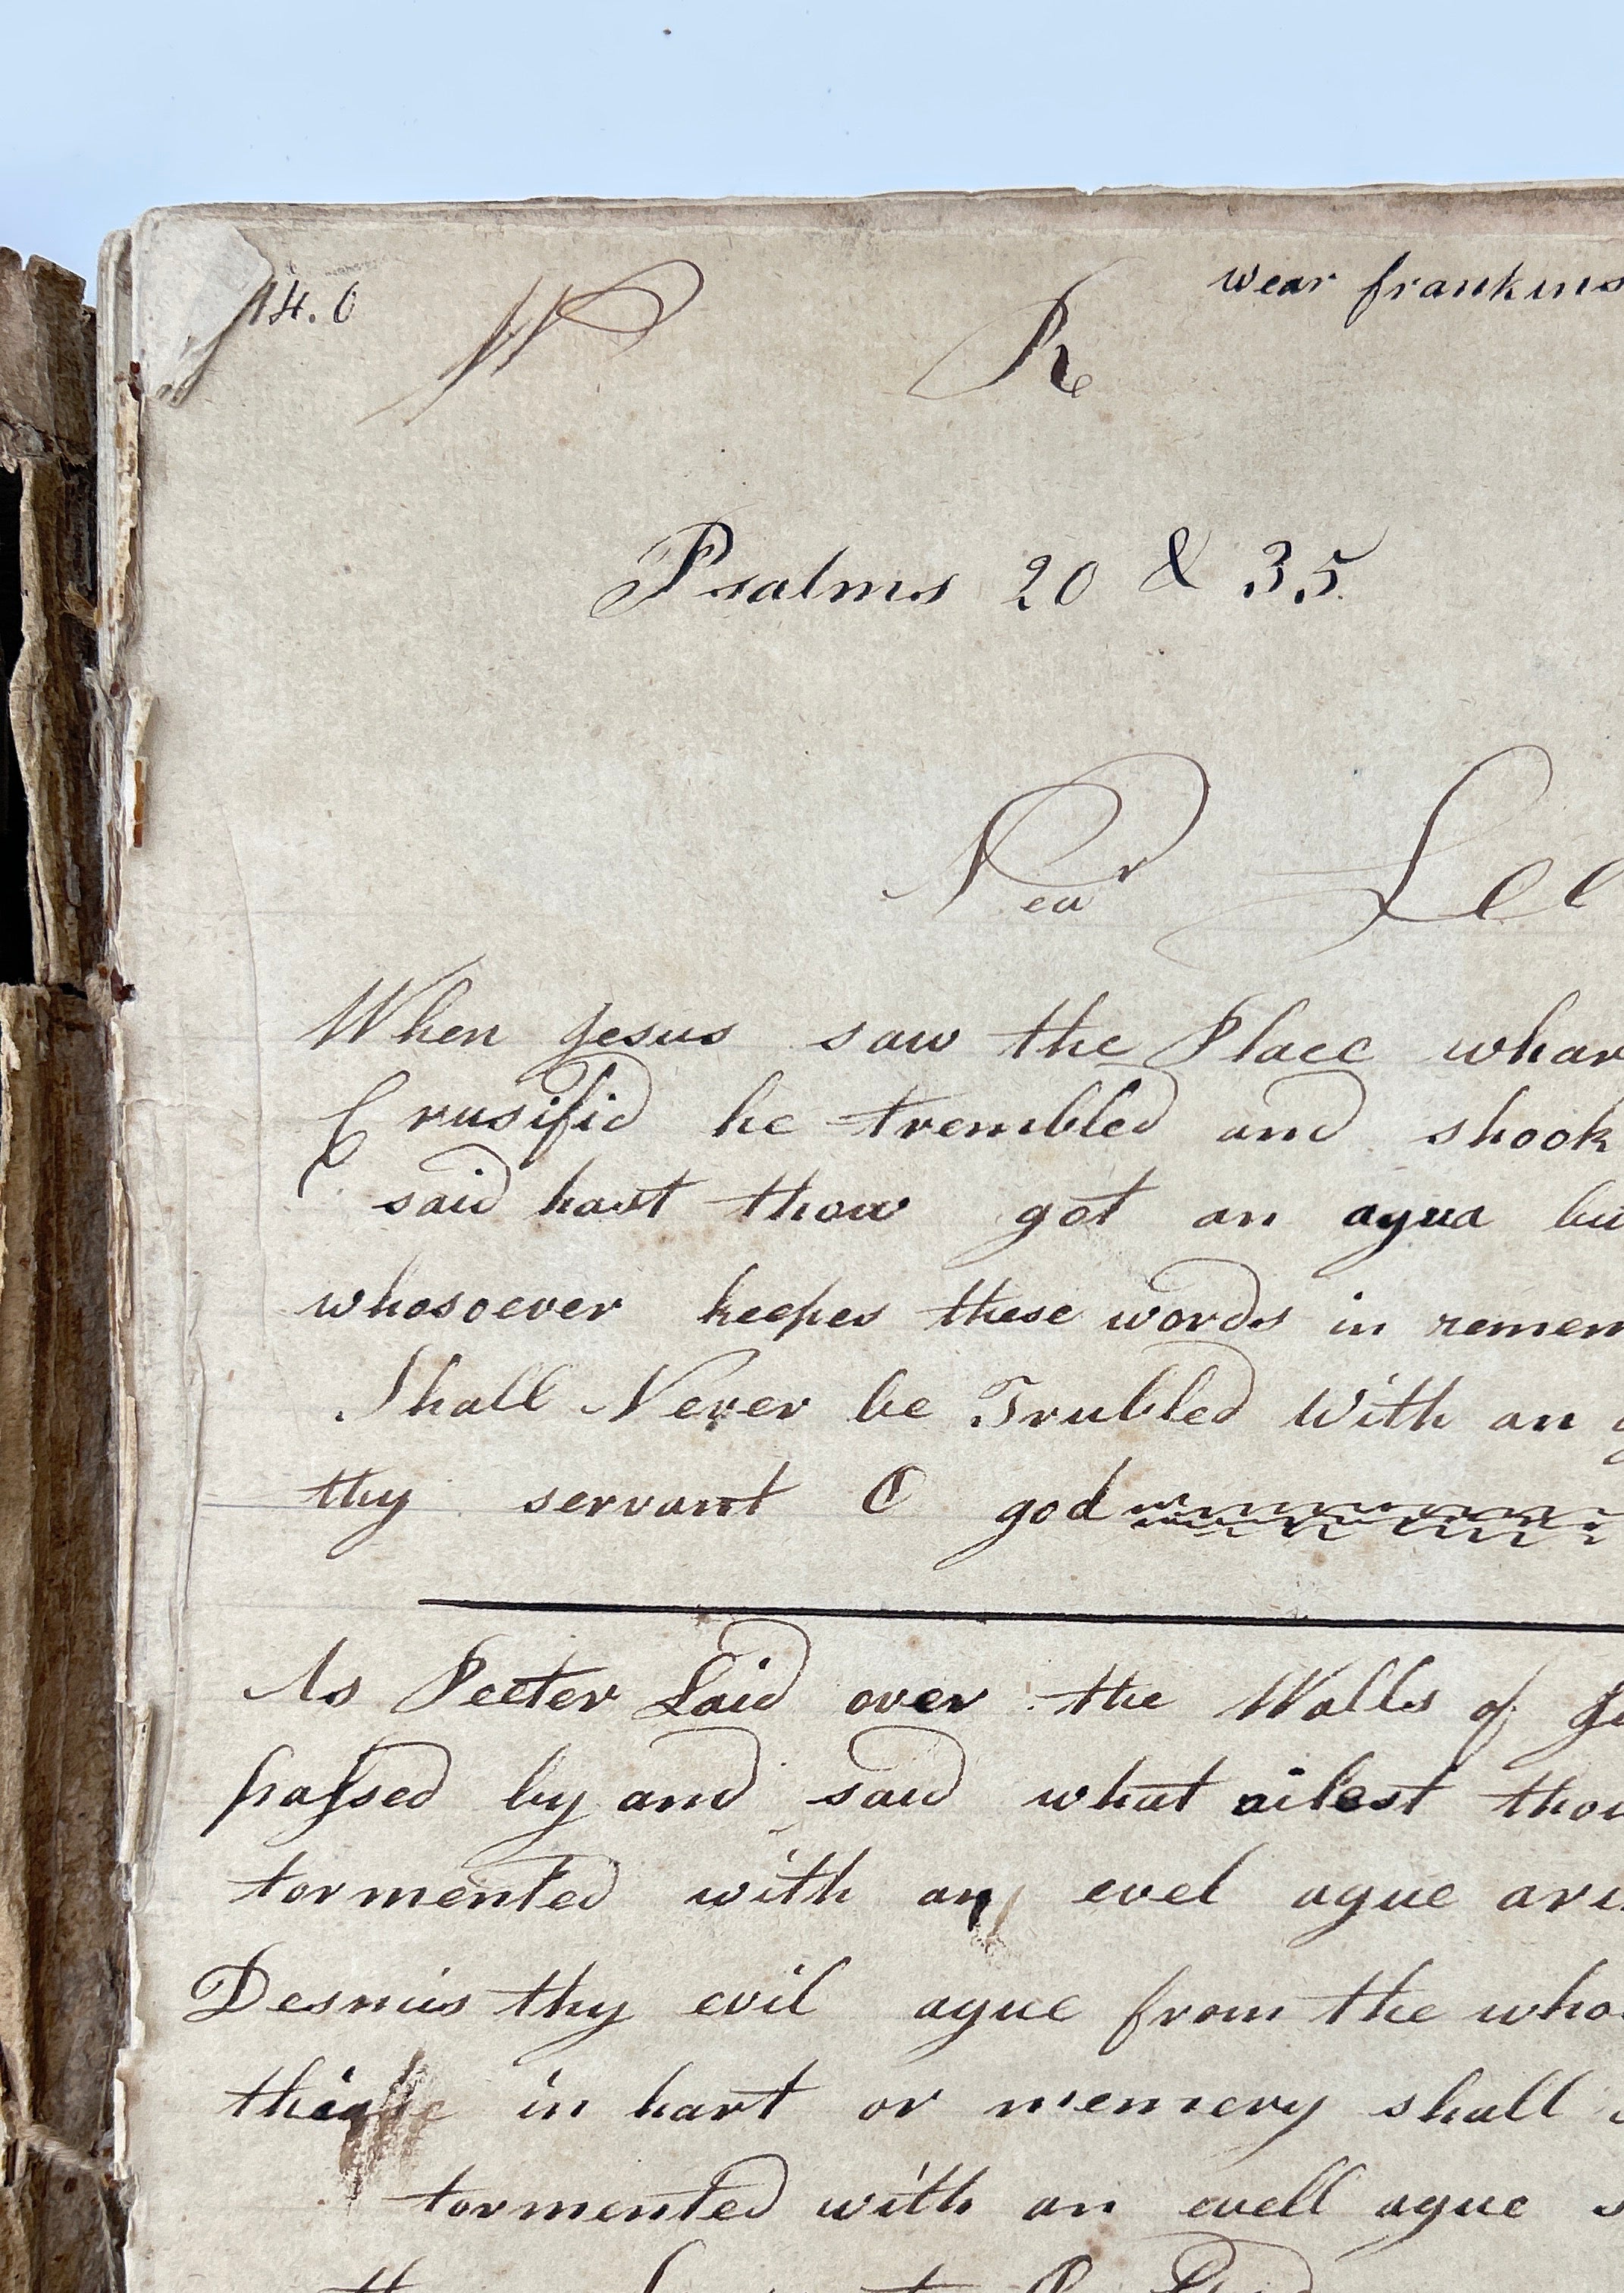 14.0 W R wear frankins
Psalms 20 & 35
Near Lee
When Jesus saw the Place whar
Crusifid he trembled and shook
said hast thow got an agua bu
whosoever keepes these words in remem
Shall Never be Trubled With an
thy servant O god
As Peeter Laid over the Walls of Je
passed by and said what ailest thou
tormented with an evel ague aris
Desmis thy evil ague from the who
in hart or memery shall
tormented with an evell ague s